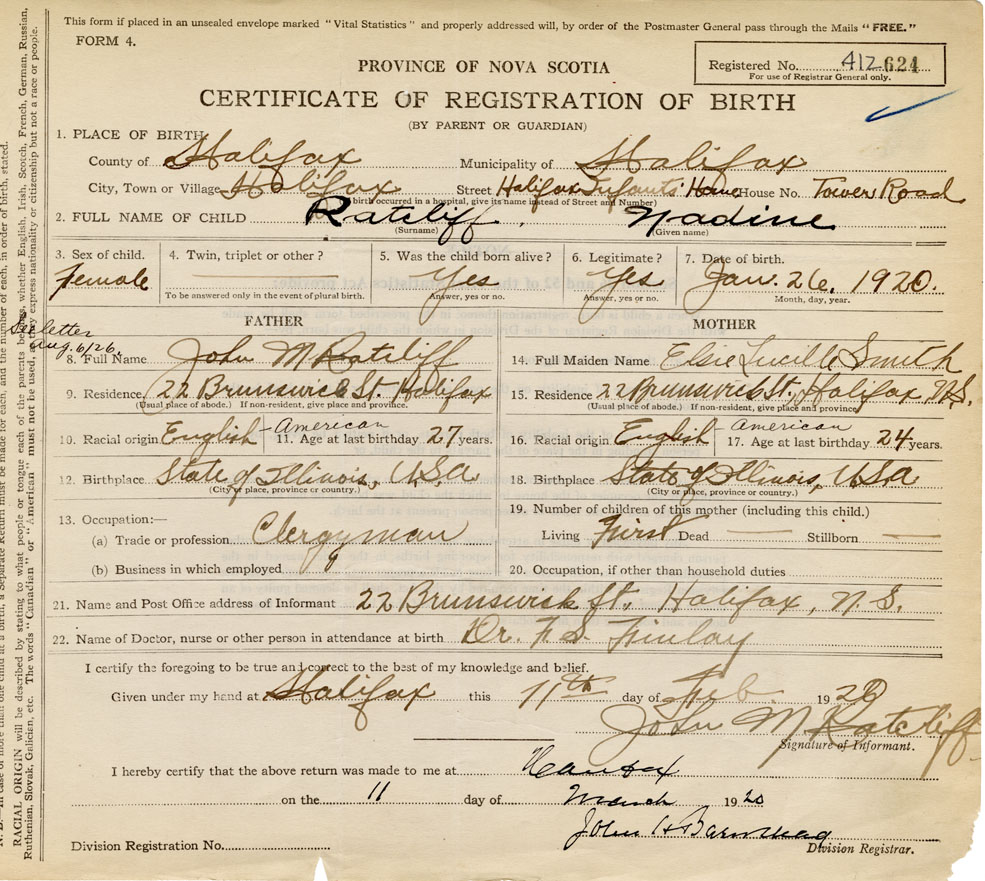 This form if placed in an unsealed envelope marked "Vital Statistics" and properly addressed will, by order of the Postmaster General pass through the Mails "FREE."
FORM 4.
Registered No. 412624
For use of Registrar General only.
PROVINCE OF NOVA SCOTIA
CERTIFICATE OF REGISTRATION OF BIRTH
(BY PARENT OR GUARDIAN)
1. PLACE OF BIRTH
County of Halifax Municipality of Halifax
City, Town or Village Halifax Street Halifax Infants Home House No. Towers Road
birth occurred in a hospital, give its name instead of Street and Number)
2. FULL NAME OF CHILD Ratcliff, Nadine
(Surname) (Given name)
3. Sex of child. 4. Twin, triplet or other? 5. Was the child born alive? 6. Legitimate? 7. Date of birth.
female Yes Yes Jan. 26, 1920.
To be answered only in the event of plural birth. Answer, yes or no. Answer, yes or no. Month, day, year.
FATHER MOTHER
See letter
Aug. 6/26.
8. Full Name John M Ratcliff 14. Full Maiden Name Elsie Lucille Smith
9. Residence 22 Brunswick St. Halifax 15. Residence 22 Brunswick St. Halifax, N.S.
(Usual place of abode.) If non-resident, give place and province. (Usual place of abode.) If non-resident, give place and province
10. Racial origin English - American 11. Age at last birthday 27 years. 16. Racial origin English - American 17. Age at last birthday 24 years.
12. Birthplace State of Illinois, U.S.A 18. Birthplace State of Illinois, U.S.A
(City or place, province or country.) (City or place, province or country.)
13. Occupation:— 19. Number of children of this mother (including this child.)
(a) Trade or profession Clergyman Living First Dead — Stillborn —
(b) Business in which employed 20. Occupation, if other than household duties
21. Name and Post Office address of Informant 22 Brunswick St. Halifax, N.S.
22. Name of Doctor, nurse or other person in attendance at birth Dr. F. S. Finlay
I certify the foregoing to be true and correct to the best of my knowledge and belief.
Given under my hand at Halifax this 11th day of Feb 1920
John M Ratcliff
Signature of Informant.
I hereby certify that the above return was made to me at
on the 11 day of March 1920
John H Barnstead
Division Registration No. Division Registrar.
RACIAL ORIGIN will be described by stating to what people or tongue each of the parents belongs, whether English, Irish, Scotch, French, German, Russian,
Ruthenian, Slovak, Galician, etc. The words "Canadian" or "American" must not be used, as they express nationality or citizenship but not a race or people.